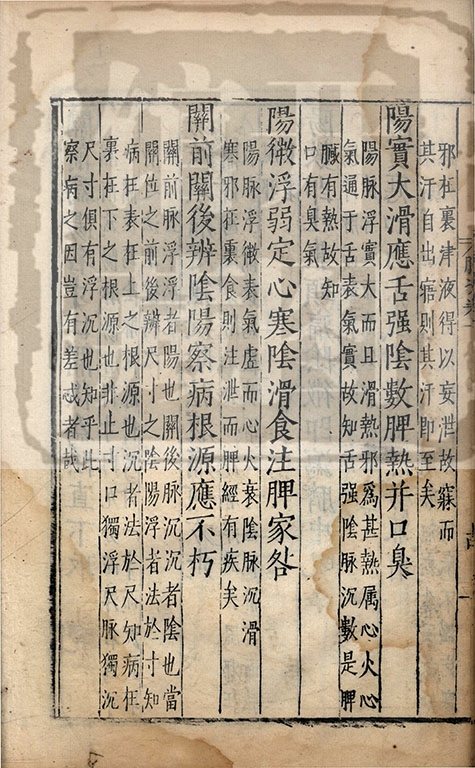 邪在裏津液得以妄泄故寐而
其汗自出寤則其汗即至矣
陽實大滑應舌强陰數脾熱并口臭
陽脉浮實大而且滑熱邪爲甚熱属心火心
氣通于舌表氣實故知舌强陰脉沉數是脾
臟有熱故知
口有臭氣
陽微浮弱定心寒陰滑食注脾家咎
陽脉浮微表氣虛而心火衰陰脉沉滑
寒邪在裏食則注泄而脾經有疾矣
關前關後辨陰陽察病根源應不朽
關前脉浮浮者陽也關後脉沉沉者陰也當
關位之前後辨尺寸之陰陽浮者法於寸知
病在表在上之根源也沉者法於尺知病在
裏在下之根源也非止寸口獨浮尺脉獨沉
尺寸俱有浮沉也知乎此
察病之因豈有差忒者哉